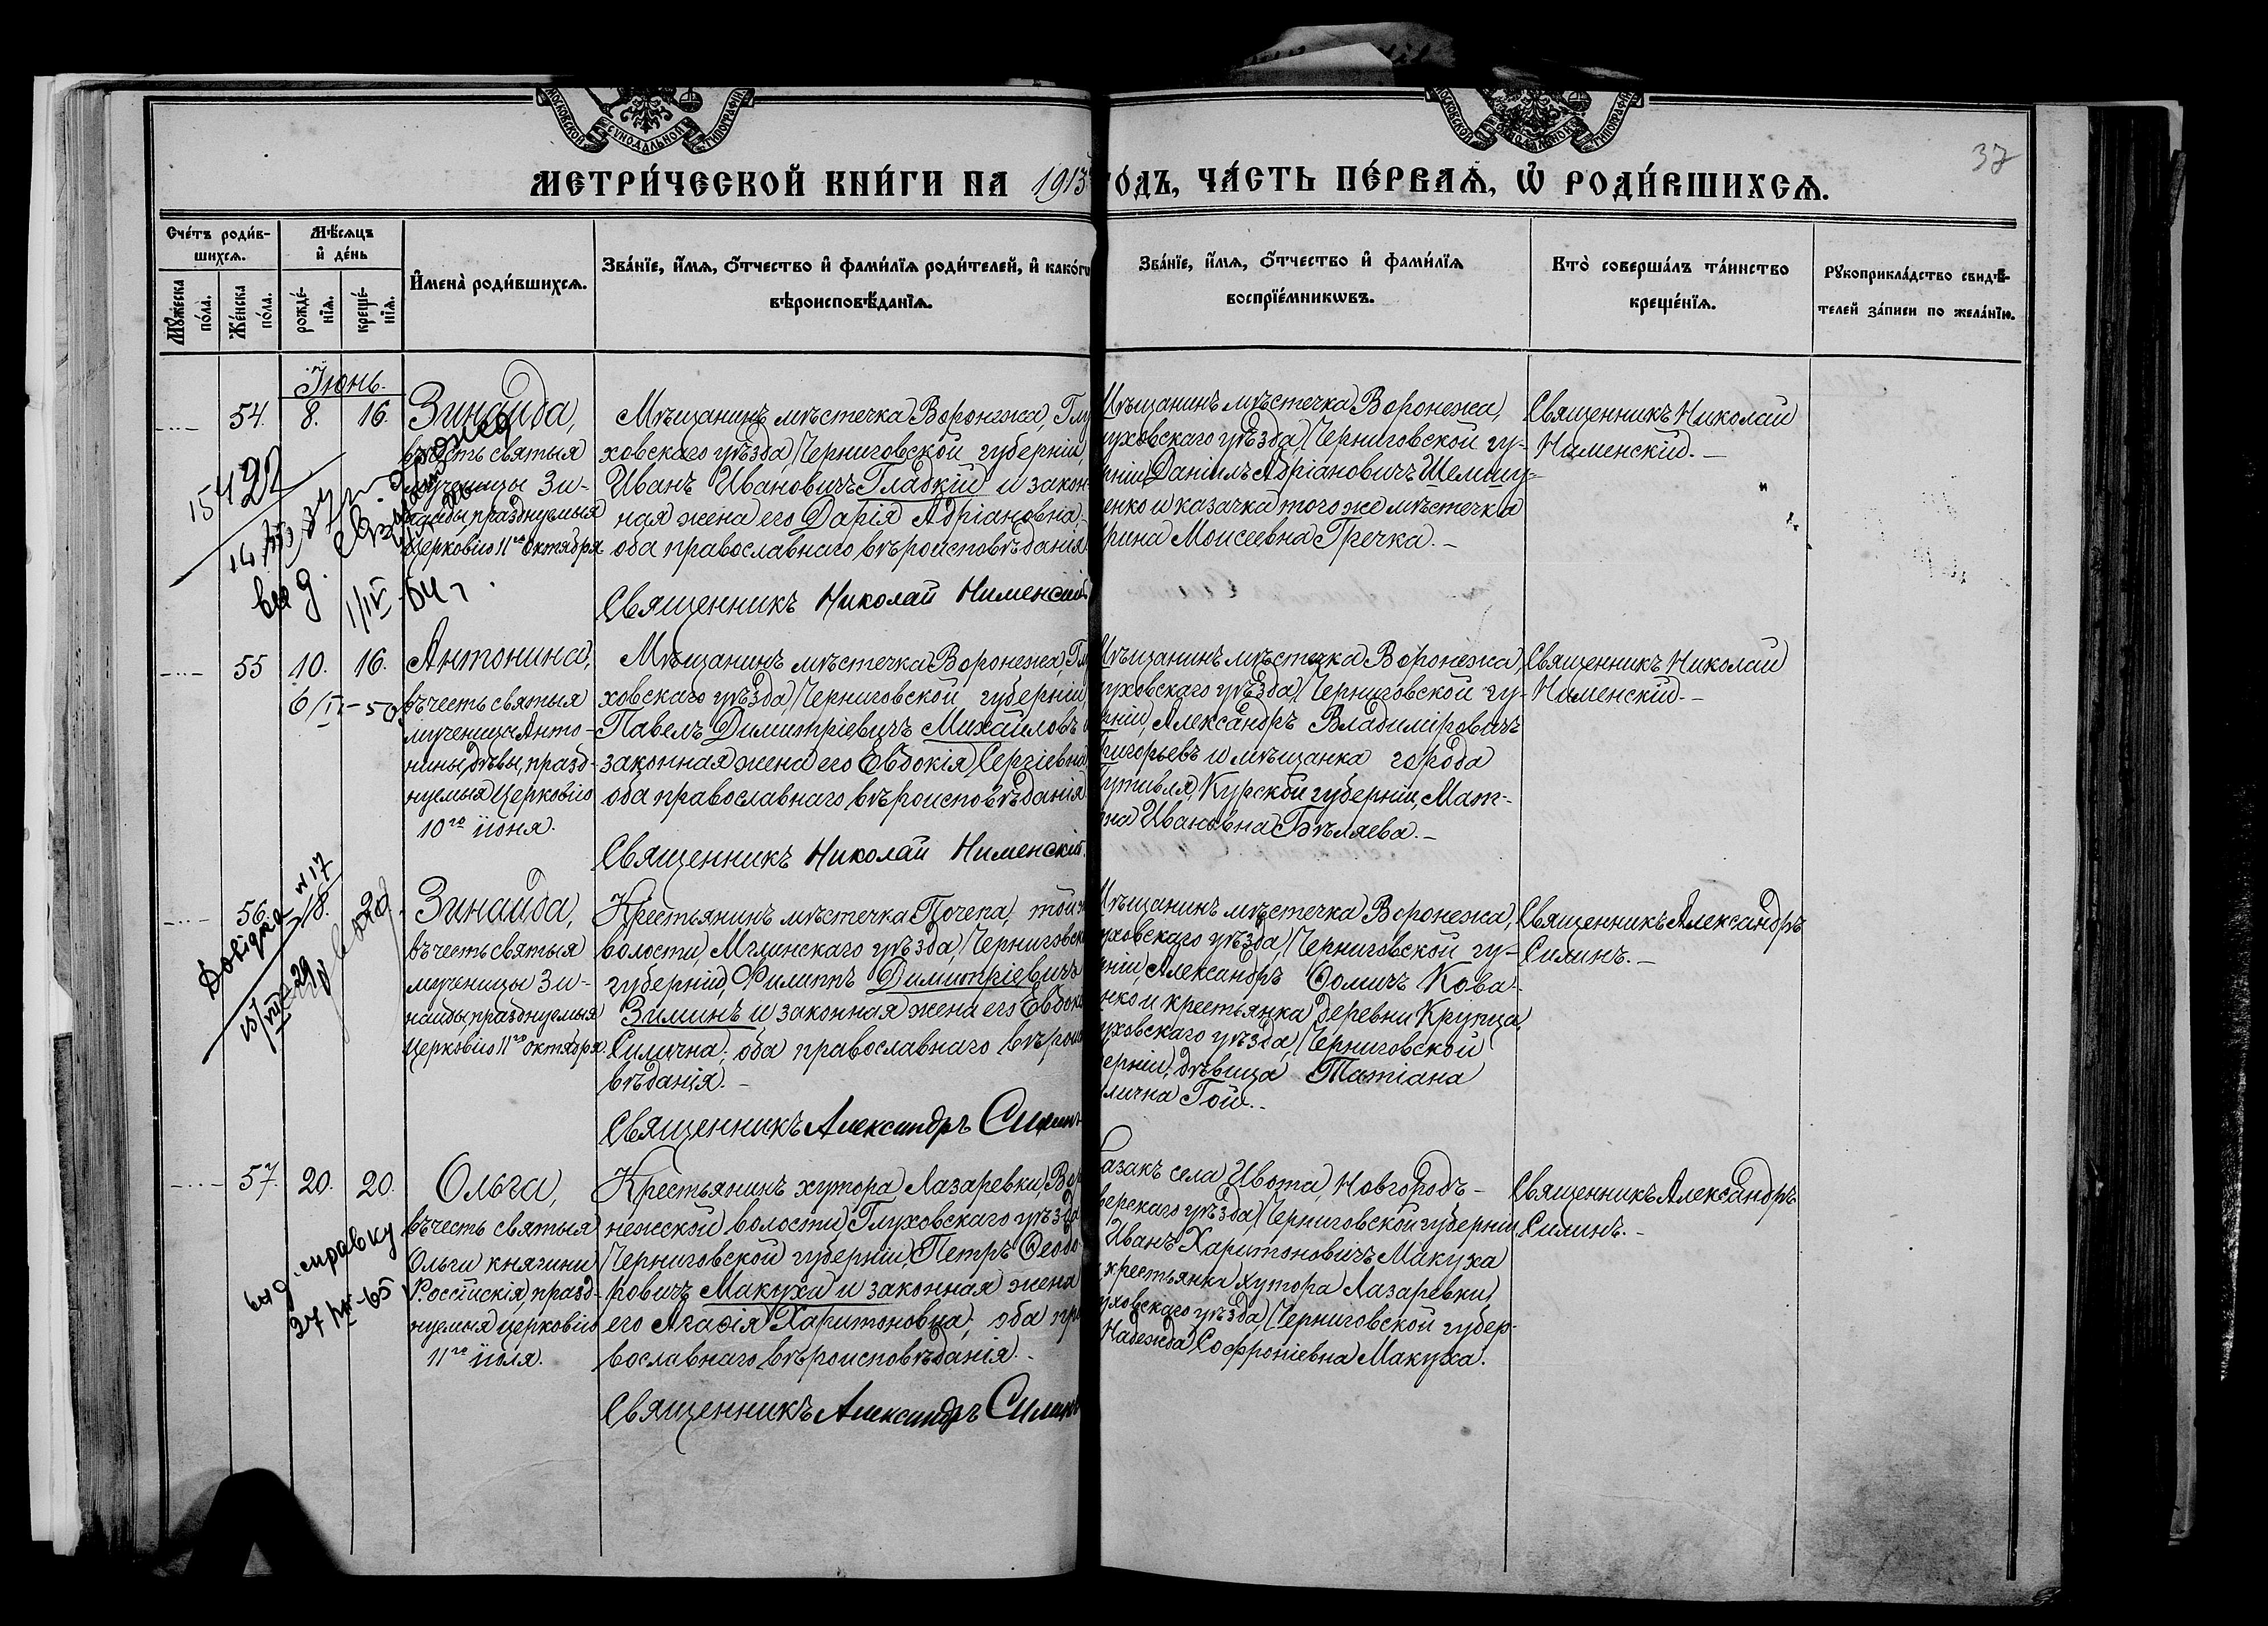 МОСКОВСКОЙ СУНОДАЛЬНОЙ ТИПОГРАФІИ
МОСКОВСКОЙ СУНОДАЛЬНОЙ ТИПОГРАФІИ
37
МЕТРИ́ЧЕСКОЙ КНИ́ГИ НА 1913
ГОДЪ, ЧА́СТЬ ПЕ́РВАЯ, Ѿ РОДИ́ВШИХСЯ.
Сче́тъ роди́в-
шихся.
Мꙋ́жеска по́ла.
Же́нска по́ла.
Мѣ́сяцъ
и҆ де́нь
рожде́-
нїя.
креще́-
нїя.
И҆мена̀ роди́вшихся.
Зва́нїе, и҆́мя, ѻ҆́тчество и҆ фами́лїя роди́телей, и҆ како́гѡ
вѣроисповѣ́данїя.
Зва́нїе, и҆́мя, ѻ҆́тчество и҆ фами́лїя
воспрїе́мникѡвъ.
Кто̀ соверша́лъ та́инство
креще́нїя.
Рꙋкоприкла́дство свидѣ́-
телей за́писи по жела́нїю.
Іюнь.
54. 8. 16. Зинаида,
въ честь святыя
мученицы Зи-
наиды, празднуемыя
Церковію 11го октября
Мѣщанинъ мѣстечка Воронежа, Глу
ховскаго уѣзда, Черниговской губерніи,
Иванъ Ивановичъ Гладкій и закон-
ная жена его Дарія Адріановна;
оба православнаго вѣроисповѣданія.
Священникъ Николай Нименскій
Мѣщанинъ мѣстечка Воронежа,
уховскаго уѣзда, Черниговской гу-
рніи, Даніилъ Адріановичъ Шелшу-
енко и казачка того же мѣстечка
рина Моисеевна Гречка.-
Священникъ Николай
Нименскій.-
1549
1/IV 54 г.
55 10. 16. Антонина,
6/II - 50
въ честь святыя
мученицы Анто-
нины, дѣвы, празд-
нуемыя Церковію
10го іюня.
Мѣщанинъ мѣстечка Воронежа, Глу
ховскаго уѣзда, Черниговской губерніи,
Павелъ Димитріевичъ Михайловъ и
законная жена его Евдокія Сергіевна
оба православнаго вѣроисповѣданія
Священникъ Николай Нименскій.
Мѣщанинъ мѣстечка Воронежа,
уховскаго уѣзда, Черниговской гу-
рніи, Александръ Владиміровичъ
Григорьевъ и мѣщанка города
утивля, Курской губерніи, Мат-
на Ивановна Бѣляева.-
Священникъ Николай
Нименскій.-
56. 18. Зинаида,
въ честь святыя
мученицы Зи-
наиды, празднуемыя
Церковію 11го октября.
№ 17
Довідка
Крестьянинъ мѣстечка Почепа, той
волости, Мглинскаго уѣзда, Черниговск
губерніи, Филиппъ Димитріевичъ
Зиминъ и законная жена его Евдок
Силична; оба православнаго вѣроис
вѣданія.-
Священникъ Александръ Силинъ
Мѣщанинъ мѣстечка Воронежа,
уховскаго уѣзда, Черниговской гу-
рніи, Александръ Ѳомичъ Кова-
нко и крестьянка деревни Крупца,
уховскаго уѣзда, Черниговской
ерніи, дѣвица Татіана
лична Гой.-
Священникъ Александръ
Силинъ.-
57. 20. 20. Ольга,
въ честь святыя
Ольги княгини
Россійскія, празд-
нуемыя церковію
11го іюля.
выд. справку
27/IV-65
Крестьянинъ хутора Лазаревки, Вор
нежской волости, Глуховскаго уѣзда
Черниговской губерніи, Петръ Ѳеодо-
ровичъ Макуха и законная жена
его Агаѳія Харитоновна; оба пра
вославнаго вѣроисповѣданія.-
Священникъ Александръ Силинъ
Казакъ села Ивота, Новгородъ-
верскаго уѣзда, Черниговской губерніи
Иванъ Харитоновичъ Макуха
крестьянка хутора Лазаревки,
уховскаго уѣзда, Черниговской губер-
Надежда Софроніевна Макуха.
Священникъ Александръ
Силинъ.-